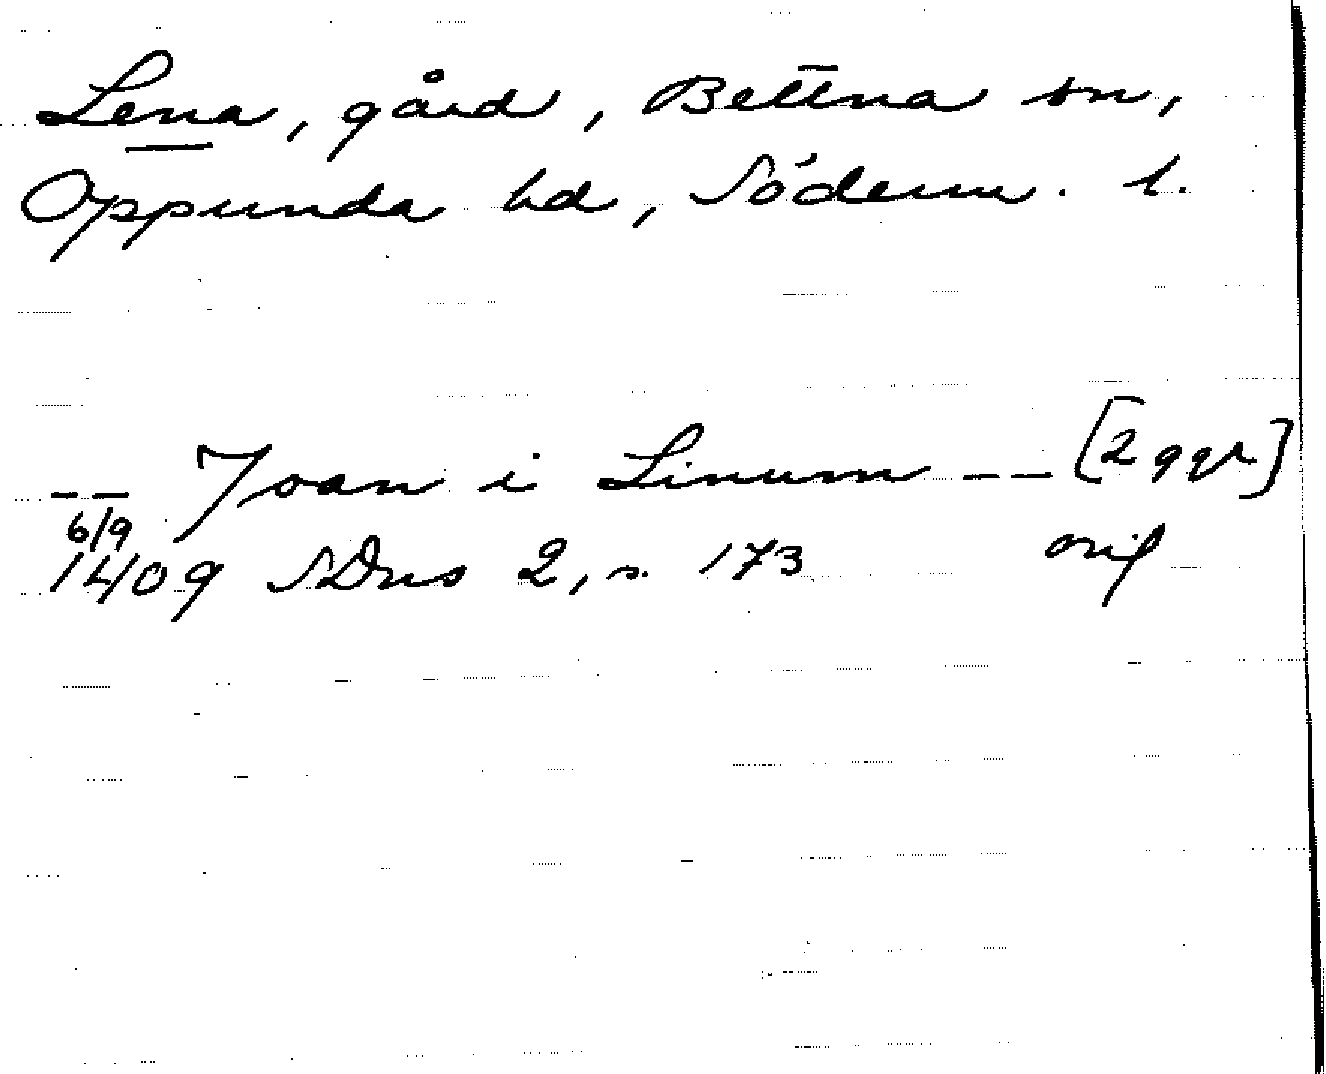 Lena, gård, Bettna sn,
Oppunda hd, Söderm. l.
-- Joan i Linum -- [2 ggr]
6/9
1409 SDns 2, s. 173 orig